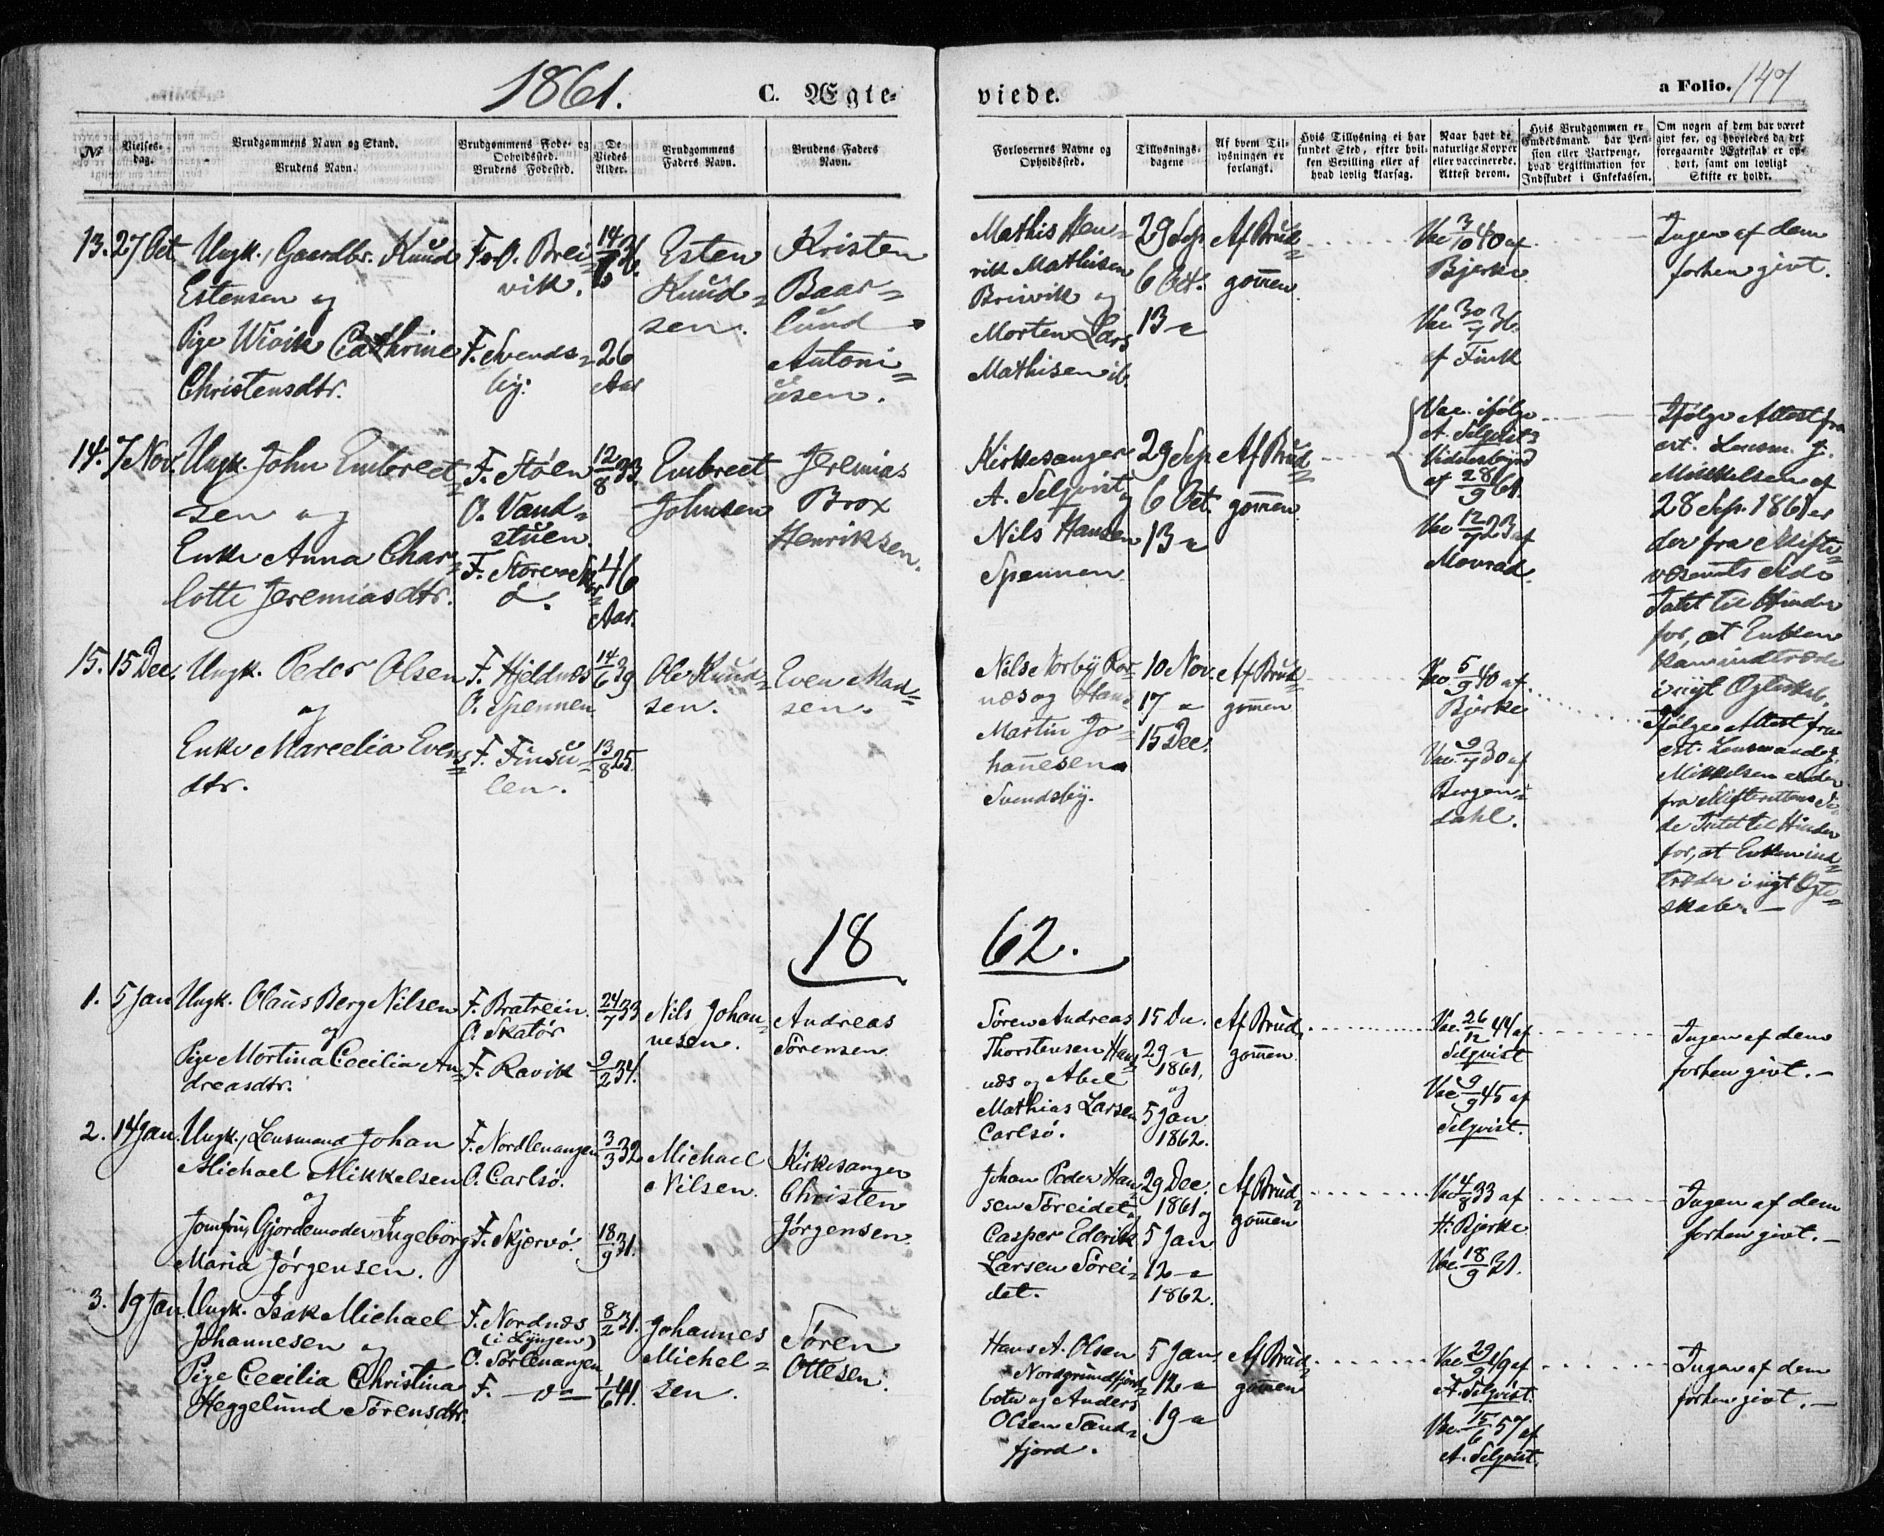 1861.
C. Ægte-
viede.
a Folio. 149
No
Vielses-
dag.
Brudgommens Navn og Stand.
Brudens Navn.
Brudgommens Føde- og
Opholdssted.
Brudens Fødested.
De
Viedes
Alder.
Brudgommens
Faders Navn.
Brudens Faders
Navn.
Forlovernes Navne og
Opholdssted.
Tillysnings-
dagene
Af hvem Til-
lysningen er
forlangt.
Hvis Tillysning ei har
fundet Sted, efter hvil-
ken Bevilling eller af
hvad lovlig Aarsag.
Naar havt de
naturlige Kopper
eller vaccinerede.
Attest derom.
Hvis Brudgommen er
Embedsmand, har Pen-
sion eller Vartpenge,
hvad Legitimation for
Indskudet i Enkekassen.
Om nogen af dem har været
givt før, og hvorledes da det
foregaaende Ægteskab er op-
hørt, samt om lovligt
Skifte er holdt.
13. 27 Oct
Ungk., Gaardbr. Knud
Estensen og
Pige Wivik Cathrine
Christensdtr.
F. o O. Brei-
vik.
F. Svends-
by.
14/6 36.
26
Aar
Esten
Knud-
sen.
Kristen
Baar-
lund
Antoni-
usen.
Mathis Hen-
rik Mathisen
Breivik og
Morten Lars
Mathisen ib.
29 Sep
6 Oct.
13 -
Af Brud-
gommen.
Vac 3/10 40 af
Bjerke
Vac 30/7 36.
af Fink
Ingen af dem
forhen givt.
14. 7 Nov.
Ungk. John Embret-
sen og
Enke Anna Char-
lotte Jeremiasdtr.
F. Støen
O. Vand-
stuen.
12/8 33.
46
Aar.
Embreet
Johnsen
Jeremias
Brox
Henriksen.
Kirkesanger
A. Selqvist og
Nils Hansen
Spennen.
29 Sep
6 Oct.
13 -
Af Brud-
gommen.
Vac. ifølge
A. Selqvists
Vidnesbyrd
af 28/9 61.
Vac 12/7 23 af
Monrad.
Ifølge Attest fra
ert. Lensm. J.
Mikkelsen af
28 Sep. 1861 er
der fra Skifte-
væsenets Side
Intet til Hinder
for, at Enken
kan indtræde
i nyt Ægteskab.
15. 15 Dec.
Ungk. Peder Olsen
og
Enke Marcelia Evens-
dtr.
F. Hjeldnæs
O. Spennen
F. Finsu-
len.
14/6 39
13/8 25.
Ole Knud-
sen.
Even Mad-
sen.
Nils Norby Kor-
næs og Hans
Martin Jo-
hannesen
Svendsby.
10 Nov.
17 -
15 Dec.
Af Brud-
gommen
Vac 5/9 40 af
Bjerke
Vac 9/7 30 af
Bergen-
dahl.
Ifølge Attest fra
ert. Lensmand J.
Mikkelsen er der
fra Skifterettens Si-
de Intet til Hinder
for, at Enken ind-
træder i nyt Ægte-
skab. -
18 62.
1. 5 Jan
Ungk. Olaus Berg Nilsen
og
Pige Martina Cecilia An-
dreasdtr.
F. Bratrein.
O. Skatør
F. Ravik
24/7 33
9/2 34.
Nils Johan-
nesen.
Andreas
Sørensen.
Søren Andreas
Thorstensen Han-
næs og Abel
Mathias Larsen
Carlsø.
15 Dec.
29 -
1861,
og
5 Jan
1862.
Af Brud-
gommen
Vac. 26/12 44 af
Selqvist
Vac 9/9 45 af
Selqvist.
Ingen af dem
forhen givt. -
2. 14 Jan.
Ungk., Lensmand Johan
Michael Mikkelsen
og
Jomfru, Gjordemoder Ingeborg
Maria Jørgensen.
F. Nordlenangen
O. Carlsø.
F. Skjervø.
3/3 32
18/9 31.
Michael
Nilsen.
Kirkesanger
Christen
Jørgensen.
Johan Peder Han-
sen Søreidet,
Casper Ederik
Larsen Sørei-
det.
29 Dec.
1861 og
5 Jan
12 -
1862.
Af Brud-
gommen
Vac 4/8 33 af
H. Bjerke
Vac. 18/9 31.
Ingen af dem
forhen givt. -
3. 19 Jan.
Ungk. Isak Michael
Johannesen og
Pige Cecilia Christina
Heggelund Sørensdtr.
F. Nordnæs
(i Lyngen)
O. Sørlenangen
F. - do -
8/2 31.
1/6 41.
Johannes
Michel-
sen.
Søren
Ottesen.
Hans A. Olsen
Nordgrundfjord-
botn og Anders
Olsen Sand-
fjord.
5 Jan.
12 -
19 -
Af Brud-
gommen
Vac 29/9 49 af
A. Selqvist.
Vac. 15/6 57 af
A. Selqvist.
Ingen af dem
forhen givt. -